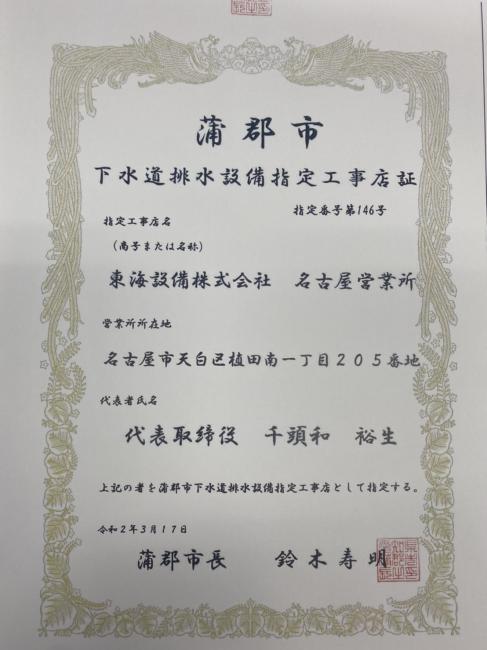 蒲郡市
下水道排水設備指定工事店証
指定番号第146号
指定工事店名
（商号または名称）
東海設備株式会社　名古屋営業所
営業所所在地
名古屋市天白区植田南一丁目２０５番地
代表者氏名
代表取締役　千頭和　裕生
上記の者を蒲郡市下水道排水設備指定工事店として指定する。
令和2年3月17日
蒲郡市長　鈴木寿明